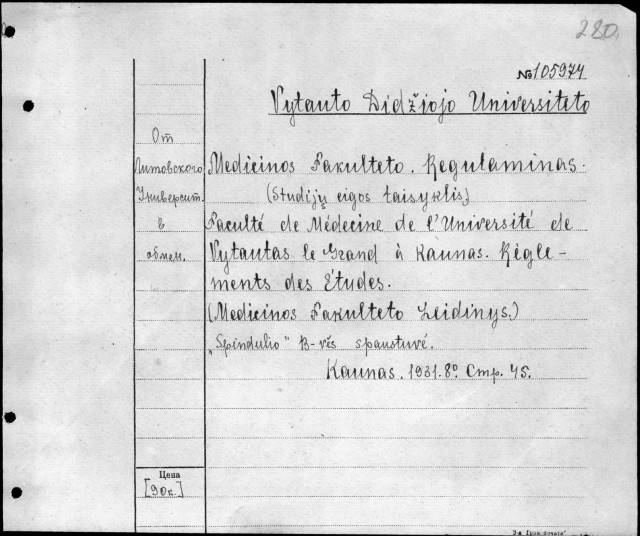 280.
№105974
Vytauto Didžiojo Universiteto
От
Литовского
Университ.
в
обмен.
Medicinos Fakulteto. Regulaminas.
(Studijų eigos taisyklis.)
Faculté de Médecine de l'Université de
Vytautas le Grand à Kaunas. Règle-
ments des Études.
(Medicinos Fakulteto Leidinys.)
„Spindulio" B-vės spaustuvė.
Kaunas. 1931. 8º. Стр. 45.
Цена
[90к.]